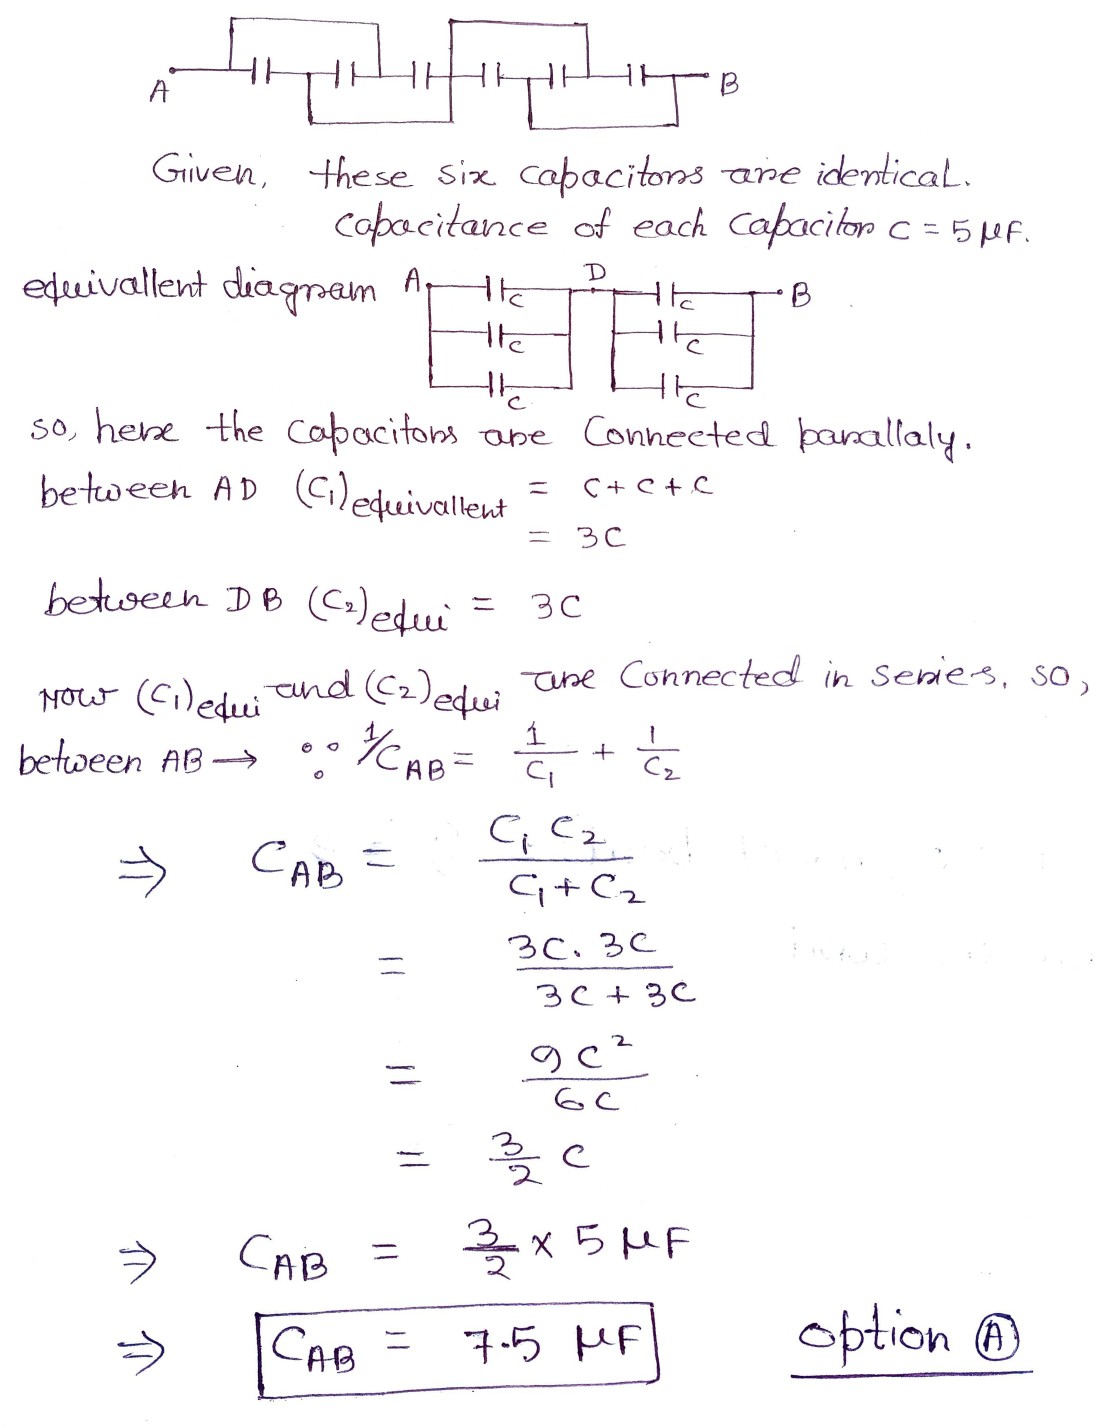 A B
Given, these six capacitors are identical.
capacitance of each capacitor C = 5 μF.
equivallent diagram A C D C B
C C
C C
so, here the capacitors are Connected parallaly.
between AD (C₁)equivallent = C + C + C
= 3C
between DB (C₂)equi = 3C
Now (C₁)equi and (C₂)equi are Connected in series, so,
between AB → ∵ 1/C_AB = 1/C₁ + 1/C₂
⇒ C_AB = C₁ C₂ / C₁ + C₂
= 3C. 3C / 3C + 3C
= 9C² / 6C
= 3/2 C
⇒ C_AB = 3/2 × 5 μF
⇒ C_AB = 7.5 μF option Ⓐ